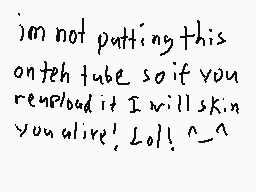 im not putting this
on teh tube so if you
reupload it I will skin
you alive! Lol! ^_^